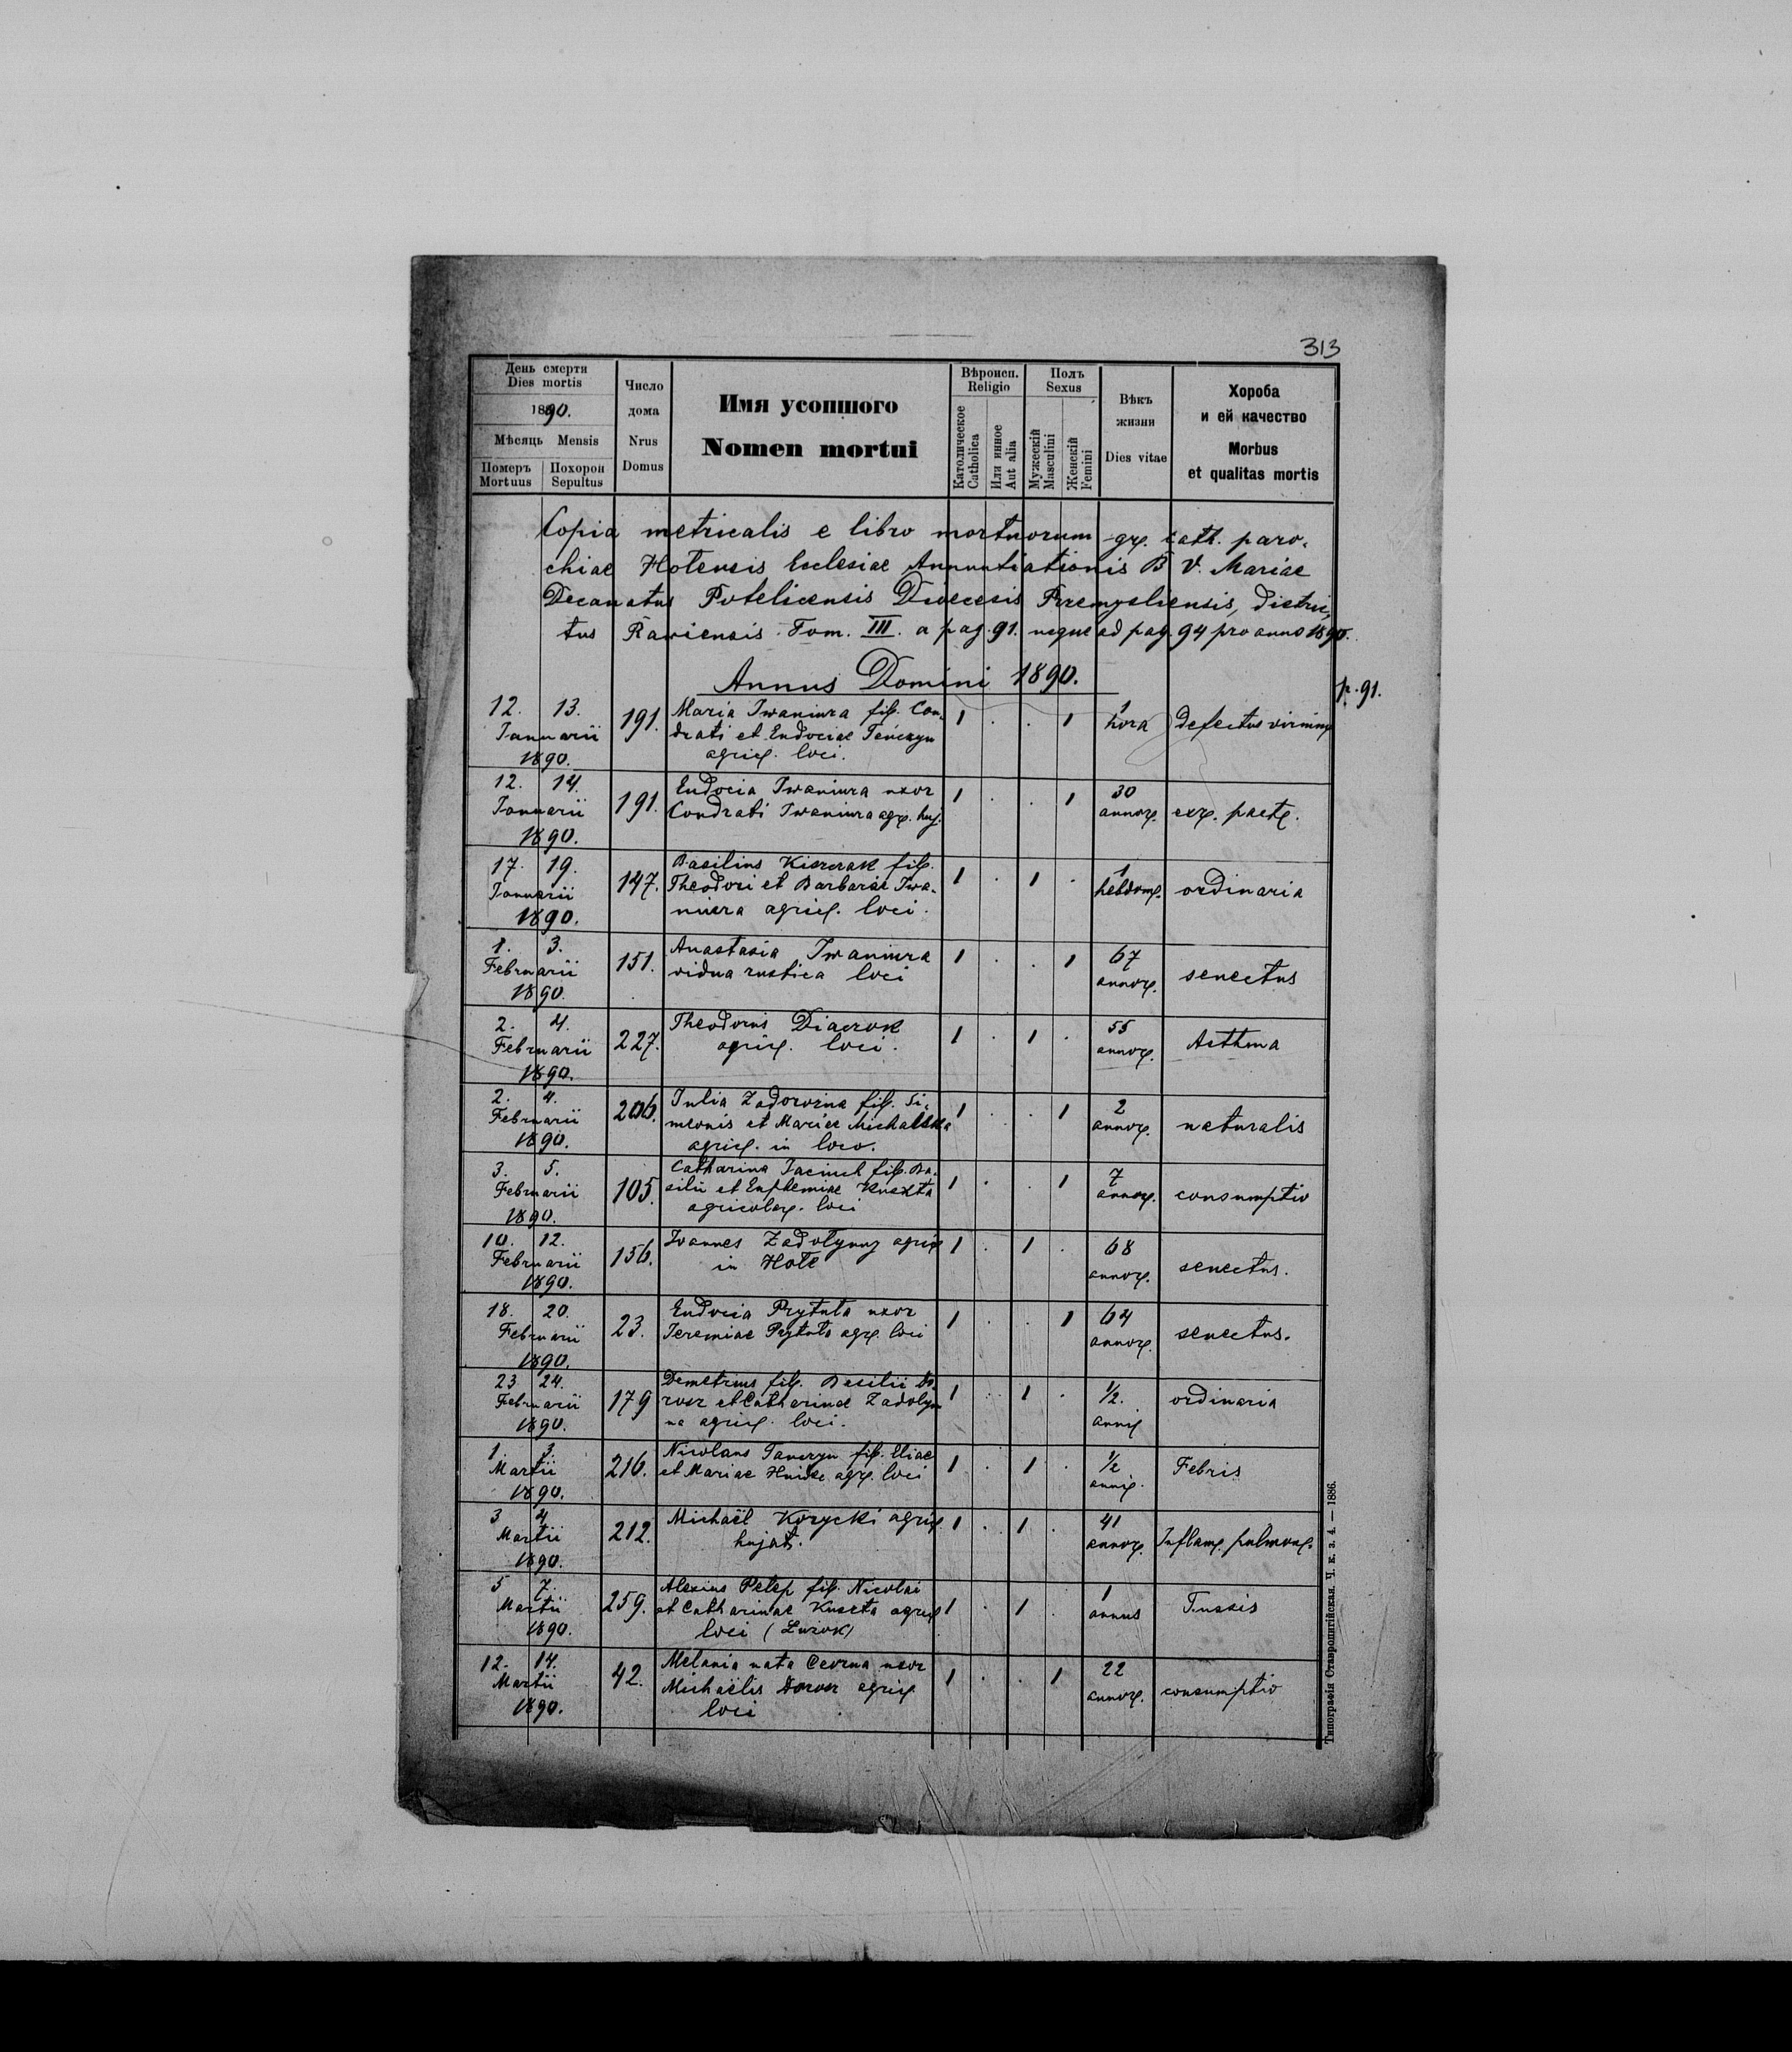 313
День смерти
Dies mortis
1890.
Мѣсяць Mensis
Померъ Похорон
Mortuus Sepultus
Число
дома
Nrus
Domus
Имя усопшого
Nomen mortui
Вѣроисп.
Religio
Католическое
Catholica
Или инное
Aut alia
Полъ
Sexus
Мужескій
Masculini
Женскій
Femini
Вѣкъ
жизни
Dies vitae
Хороба
и ей качество
Morbus
et qualitas mortis
Copia metricalis e libro mortuorum gr. cath. paro-
chiae Hotensis Ecclesiae Annuntiationis B. V. Mariae
Decanatus Potelicensis Dioecesis Premysliensis, distric-
tus Raviensis Tom. III. a pag. 91. usque ad pag. 94 pro anno 1890.
Annus Domini 1890.
p. 91.
12. 13. Januarii 1890. 191. Maria Iwaniura fil. Con- 1 . . 1 1 hora defectus virium
drati et Eudociae Tenczyn
agric. loci.
12. 14. Januarii 1890. 191. Eudocia Iwaniura uxor 1 . . 1 30 annor. exr. partr.
Condrati Iwaniura agr. huj.
17. 19. Januarii 1890. 147. Basilius fil. 1 . 1 . 1 hebdom. ordinaria
Theodori et Barbarae Iwa-
niura agric. loci.
1. 3. Februarii 1890. 151. Anastasia Iwaniura 1 . . 1 67 annor. senectus
vidua rustica loci
2. 4. Februarii 1890. 227. Theodorus Diaczok 1 . 1 . 55 annor. Asthma
agric. loci.
2. 4. Februarii 1890. 206. Julia Zadorozna fil. Si- 1 . . 1 2 annor. naturalis
meonis et Mariae Michalska
agric. in loco.
3. 5. Februarii 1890. 105. Catharina Jacinch fil. Ba- 1 . . 1 7 annor. consumptio
silii et Euphemiae
agricolar. loci
10. 12. Februarii 1890. 156. Ioannes Zadolynny agric 1 . 1 . 68 annor. senectus.
in Hote
18. 20. Februarii 1890. 23. Eudocia Prytuta uxor 1 . . 1 64 annor. senectus.
Jeremiae Prytuta agr. loci
23 24. Februarii 1890. 179 Demetrius fil. Basilii Do 1 . 1 . 1/2. anni ordinaria
rosz et Catharinae Zadolyn
na agric. loci.
1. 3. Martii 1890. 216. Nicolaus fil. Eliae 1 . 1 . 1/2 anni. Febris
et Mariae agr. loci
3 4 Martii 1890. 212. Michaël Korycki agric. 1 . 1 . 41 annor. Inflam. pulmon.
hujat.
5 7. Martii 1890. 259. Alexius Petep fil. Nicolai 1 . 1 . 1 annus Tussis
et Catharinae agric
loci (Luzok)
12. 14. Martii 1890. 42. Melania nata Czorna uxor 1 . . 1 22 annor. consumptio
Michaëlis Dorosz agric
loci
Типографія Ставропигійская. Ч. к. з. 4. — 1886.